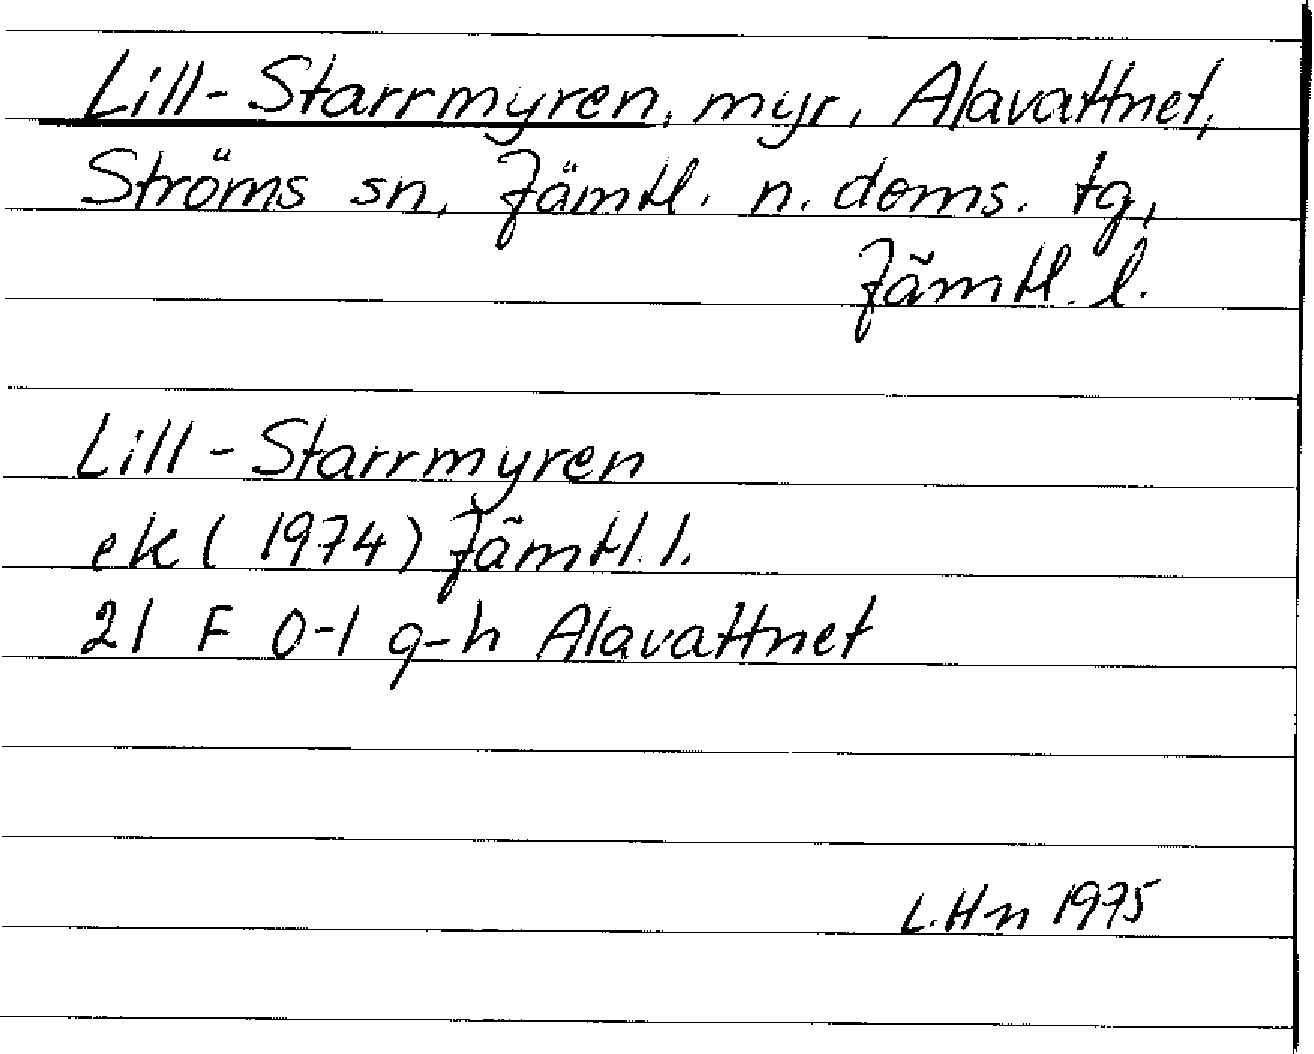 Lill-Starrmyren, myr, Alavattnet,
Ströms sn, Jämtl. n. doms. tg,
Jämtl. l.
Lill-Starrmyren
ek (1974) Jämtl. l.
21 F 0-1 g-h Alavattnet
L. Hn 1975